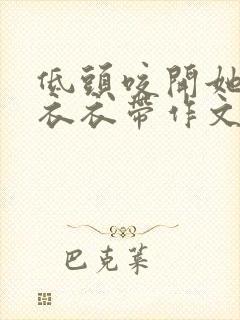 低頭咬開她
衣衣帶作文
巴克萊